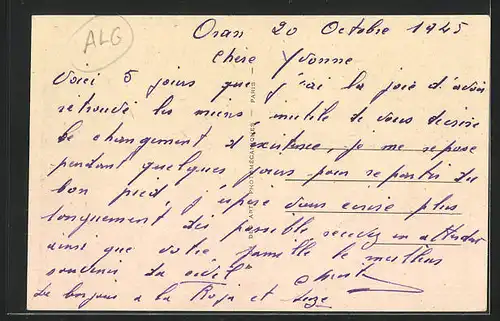 ALG
Oran 20 Octobre 1945
Chère Yvonne
Voici 5 jours que j'ai la joie d'avoir
retrouvé les miens inutile de vous décrire
le changement d'existence, je me repose
pendant quelques jours pour repartir du
bon pied, j'espère vous écrire plus
longuement si possible recevez en attendant
ainsi que votre famille le meilleur
souvenir du
Le bonjour a la et
PARIS